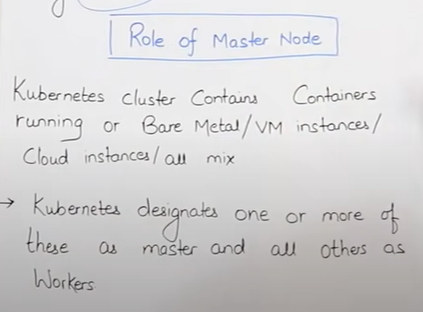 Role of Master Node
Kubernetes cluster Contains Containers
running or Bare Metal/VM instances/
Cloud instances/all mix
→ Kubernetes designates one or more of
these as master and all others as
Workers